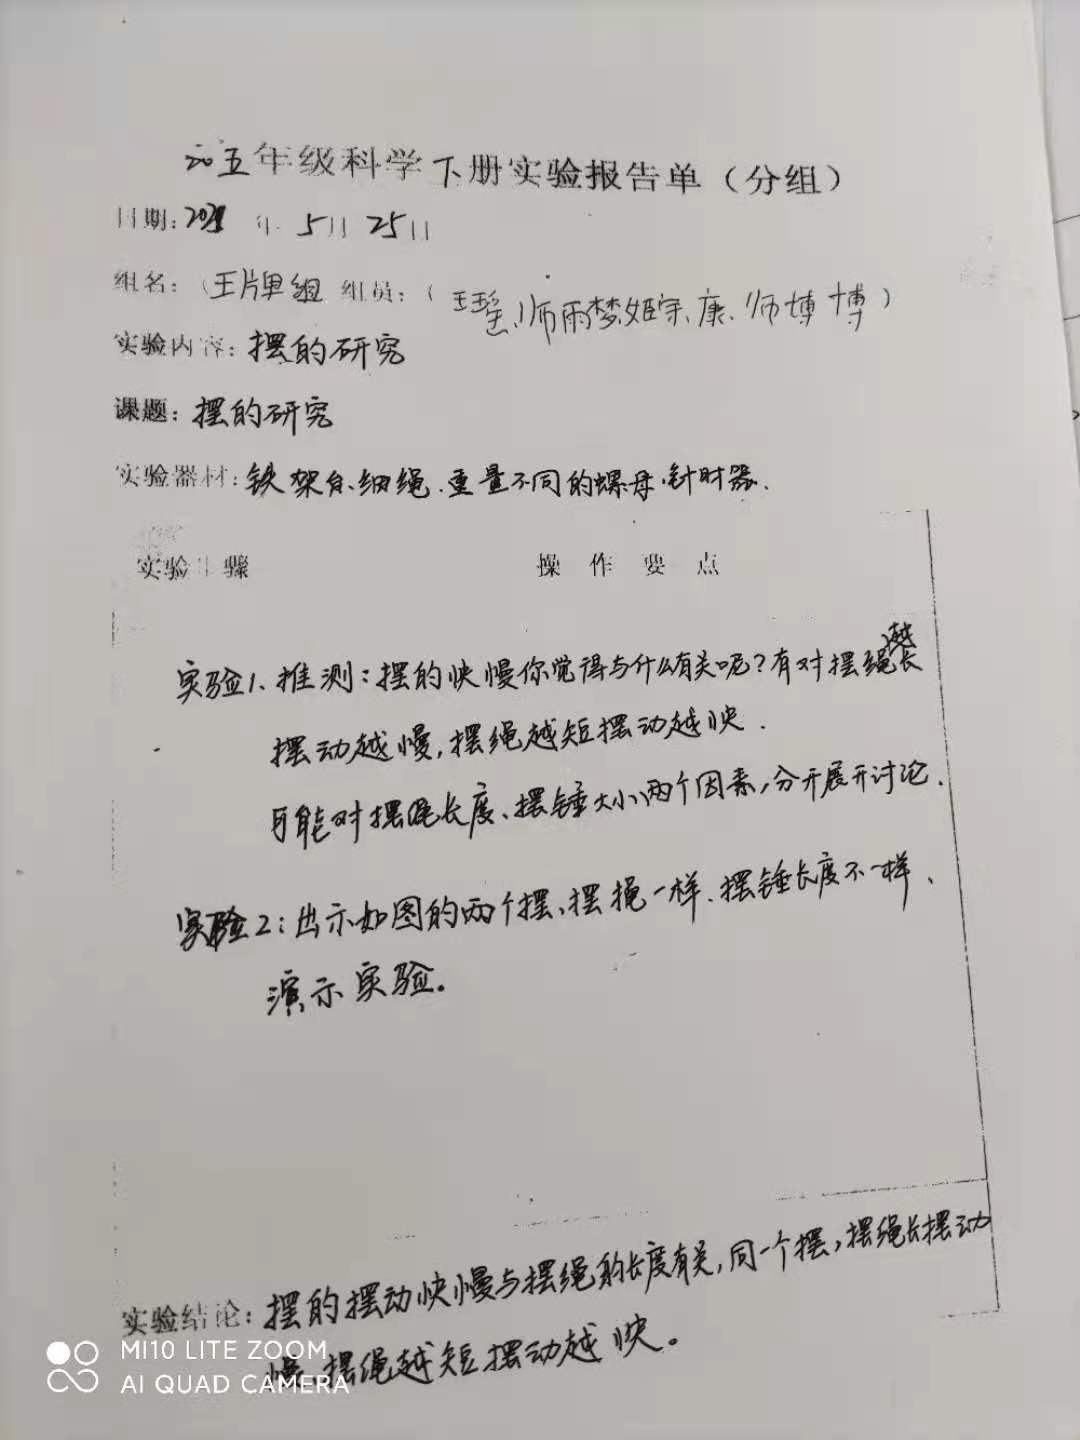 五年级科学下册实验报告单（分组）
日期: 年 5月 25日
组名：（王牌组 组员：（王瑶、师雨梦、姬宗康、师博博）
实验内容：摆的研究
课题：摆的研究
实验器材：铁架台、细绳、重量不同的螺母、针时器.
实验步骤 操作要点
实验1、推测：摆的快慢你觉得与什么有关呢？有对摆绳越长
摆动越慢，摆绳越短摆动越快.
可能对摆绳长度、摆锤大小两个因素，分开展开讨论.
实验2：出示如图的两个摆、摆绳一样、摆锤长度不一样、
演示实验。
实验结论：摆的摆动快慢与摆绳的长度有关，同一个摆，摆绳长摆动
慢、摆绳越短摆动越快。
MI10 LITE ZOOM
AI QUAD CAMERA